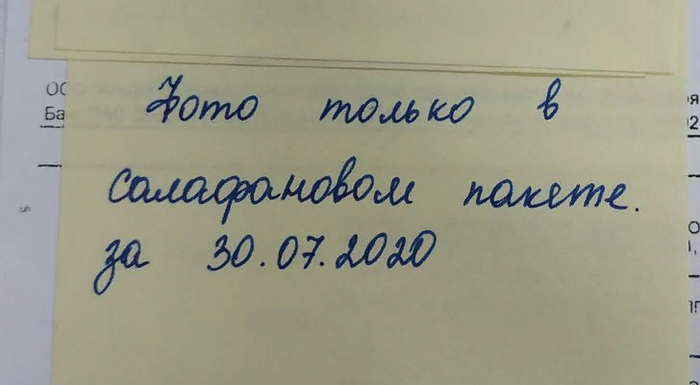 Фото только в
салафановом пакете.
за 30.07.2020